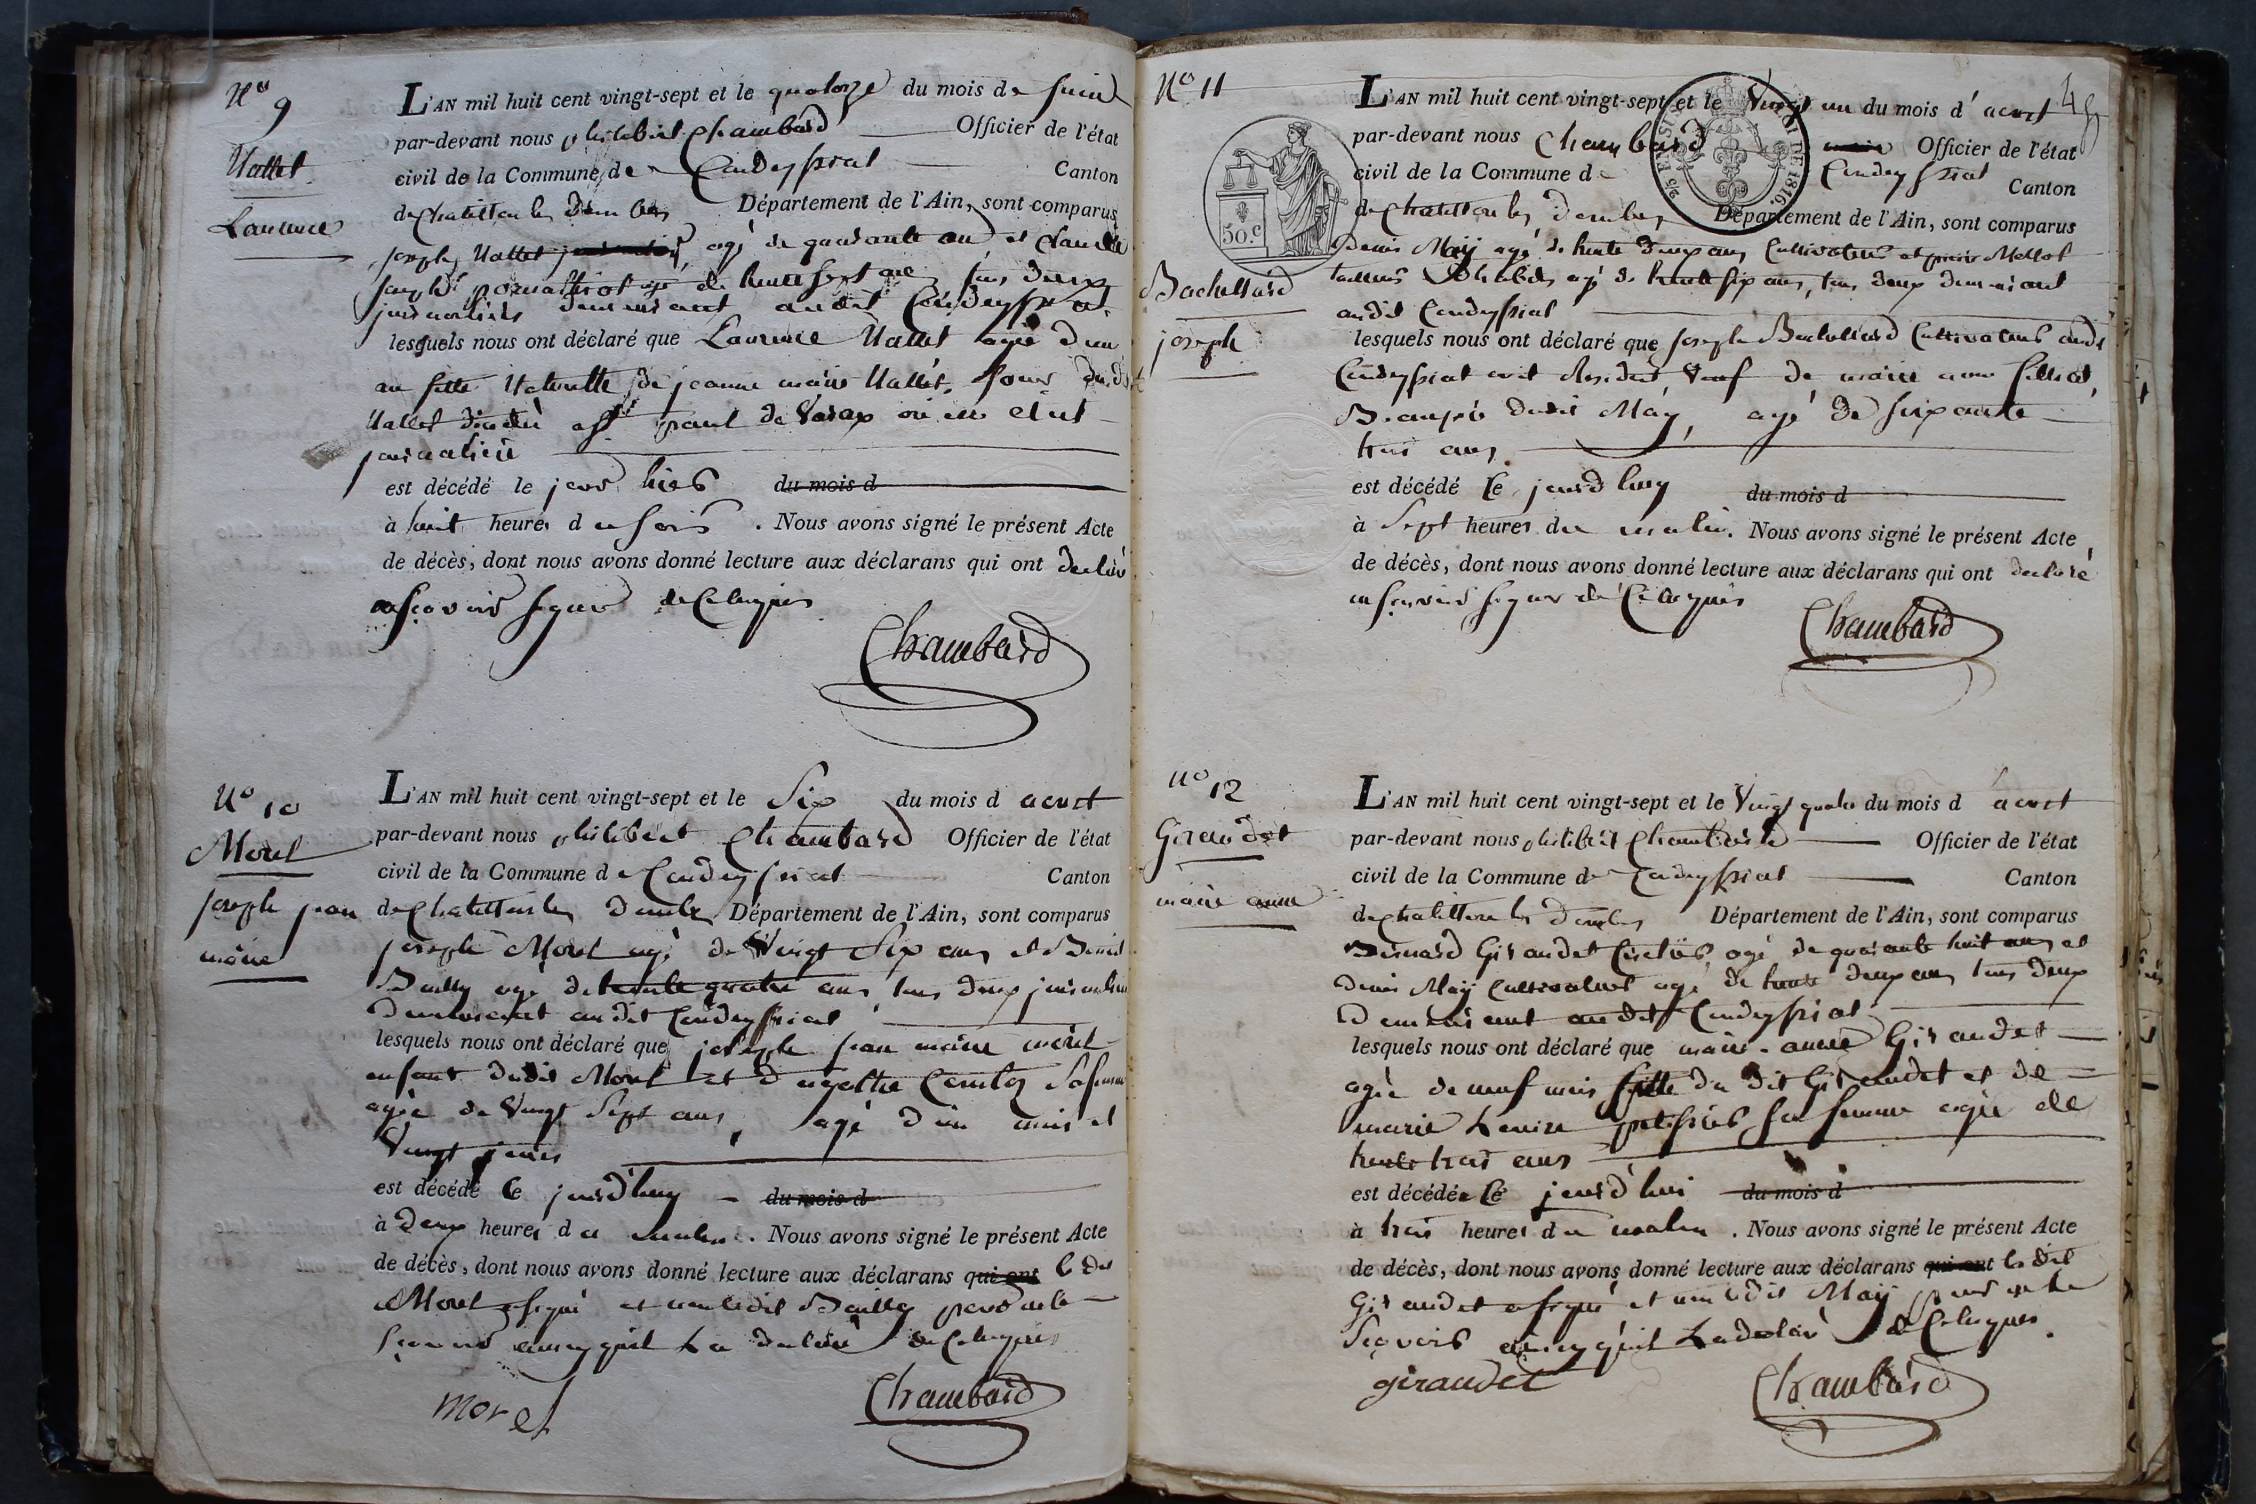 N° 9
Vallet
Laurence
L'AN mil huit cent vingt-sept et le quatorze du mois de juin
par-devant nous philibert Chambard Officier de l'état
civil de la Commune de Condeyssiat Canton
de Chatillon les Dombes Département de l'Ain, sont comparus
joseph Vallet agé de quarante ans et Claude
joseph agé de trente sept ans tous deux
journaliers demeurant audit Condeyssiat
lesquels nous ont déclaré que Laurence Vallet agée d'un
an fille naturelle de jeanne marie Vallet, soeur dudit
Vallet de Varax où elle etait
journaliere
est décédé le jour hier du mois d
à huit heures du soir. Nous avons signé le présent Acte
de décès, dont nous avons donné lecture aux déclarans qui ont declaré
ne sçavoir signer de ce enquis
Chambard
N° 10
Morel
joseph jean
marie
L'AN mil huit cent vingt-sept et le Six du mois d aout
par-devant nous philibert Chambard Officier de l'état
civil de la Commune de Condeyssiat Canton
de Chatillon les Dombes Département de l'Ain, sont comparus
joseph Morel agé de Vingt Six ans et Benoit
Bailly agé de trente quatre ans, tous deux journaliers
demeurant audit Condeyssiat
lesquels nous ont déclaré que joseph jean marie morel
enfant dudit Morel et d'agathe Sa femme
agée de Vingt Sept ans, agé d'un mois et
Vingt jours
est décédé Ce jourd'huy du mois d
à deux heures du matin. Nous avons signé le présent Acte
de décès, dont nous avons donné lecture aux déclarans qui ont le dit
Morel a signé et non ledit Bailly pour ne le
sçavoir ainsy qu'il la declaré de ce enquis
morel
Chambard
N° 11
Bachellard
joseph
50.c
45
L'AN mil huit cent vingt-sept et le Vingt un du mois d'aout
par-devant nous Chambard maire Officier de l'état
civil de la Commune de Condeyssiat Canton
de Chatillon les Dombes Département de l'Ain, sont comparus
Denis Maÿ agé de trente deux ans Cultivateur et
tailleur d'habits agé de trente six ans, tous deux demeurant
audit Condeyssiat
lesquels nous ont déclaré que joseph Bachellard Cultivateur audit
Condeyssiat Veuf de marie
Beaupere dudit Maÿ, agé de soixante
trois ans.
est décédé Ce jourd'huy du mois d
à Sept heures du matin. Nous avons signé le présent Acte
de décès, dont nous avons donné lecture aux déclarans qui ont declaré
ne sçavoir signer de ce enquis
Chambard
N° 12
Giraudet
marie anne
L'AN mil huit cent vingt-sept et le Vingt quatre du mois d aout
par-devant nous philibert Chambard Officier de l'état
civil de la Commune de Condeyssiat Canton
de Chatillon les Dombes Département de l'Ain, sont comparus
Bernard Giraudet agé de quarante huit ans et
Denis Maÿ Cultivateur agé de trente deux ans tous deux
demeurant audit Condeyssiat
lesquels nous ont déclaré que marie anne Giraudet
agée de neuf mois fille du dit Giraudet et de
marie Louise sa femme agée de
trente trois ans
est décédée Ce jourd'hui du mois d
à trois heures du matin. Nous avons signé le présent Acte
de décès, dont nous avons donné lecture aux déclarans qui ont le dit
Giraudet a signé et non ledit Maÿ pour ne le
sçavoir ainsy qu'il la declaré de ce enquis.
giraudet
Chambard